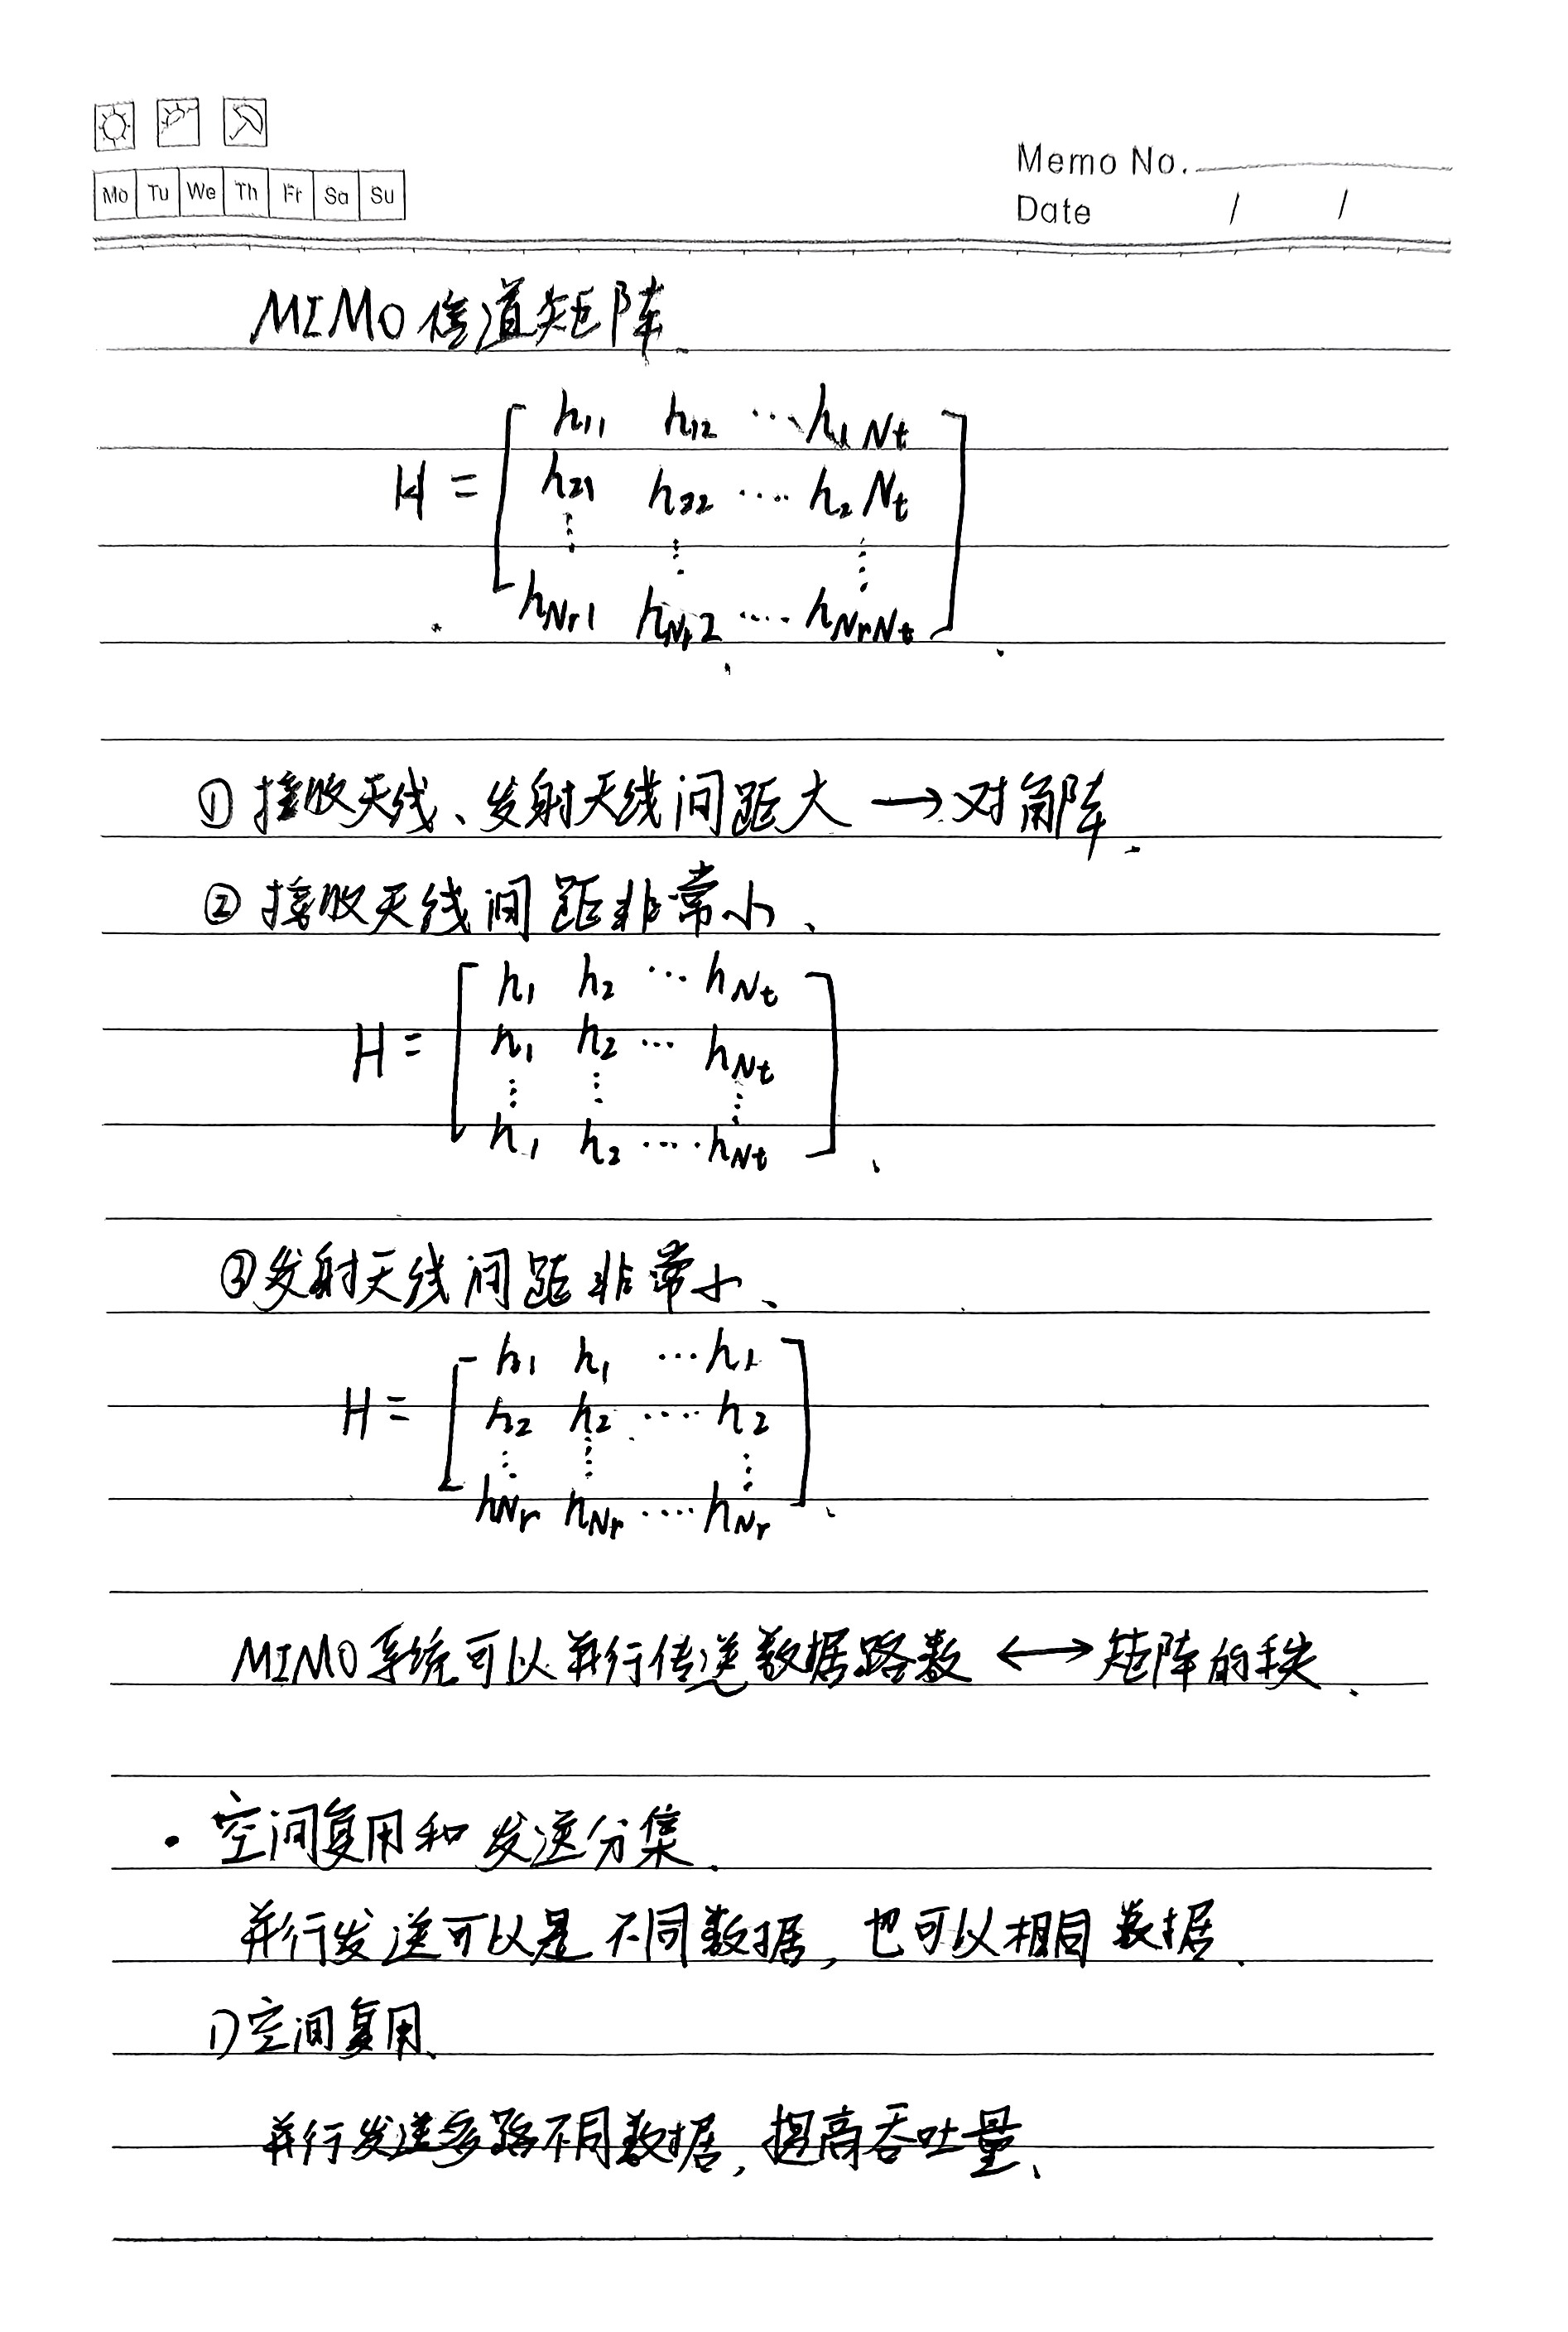 Memo No.
Mo Tu We Th Fr Sa Su
Date / /
MIMO信道矩阵.
H = [ h11 h12 ... h1Nt
h21 h22 .... h2Nt
⋮ ⋮ ⋮
hNr1 hNr2 .... hNrNt ].
① 接收天线、发射天线间距大 → 对角阵.
② 接收天线间距非常小、
H = [ h1 h2 ... hNt
h1 h2 ... hNt
⋮ ⋮ ⋮
h1 h2 ..... hNt ]、
③ 发射天线间距非常小、
H = [ h1 h1 ... h1
h2 h2 .... h2
⋮ ⋮ ⋮
hNr hNr .... hNr ]、
MIMO系统可以并行传送数据路数 ↔ 矩阵的秩.
· 空间复用和发送分集.
并行发送可以是不同数据, 也可以相同数据.
1) 空间复用、
并行发送多路不同数据, 提高吞吐量、